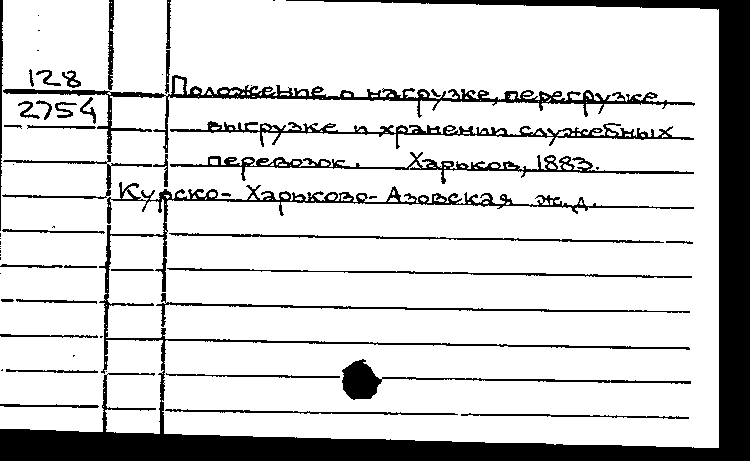 128
2754
Положение о нагрузке, перегрузке,
выгрузке и хранении служебных
перевозок. Харьков, 1883.
Курско-Харьково-Азовская ж.д.